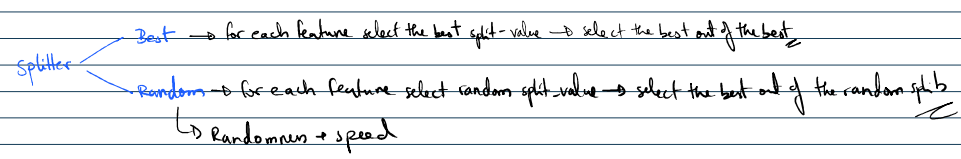 Best → for each feature select the best split-value → select the best out of the best
Splitter
Random → for each feature select random split-value → select the best out of the random splits
↳ Randomness + speed